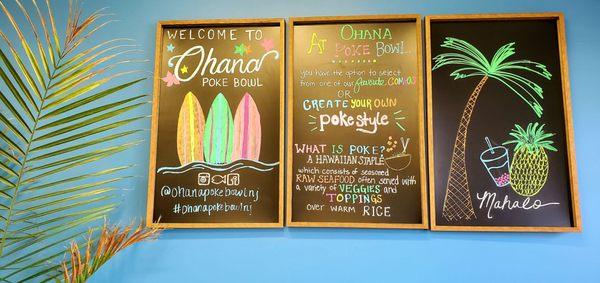 WELCOME TO
Ohana
POKE BOWL
@Ohanapokebowlnj
#Ohanapokebowlnj
At OHANA
POKE BOWL
you have the option to select
from one of our favorite COMBOS
OR
CREATE YOUR OWN
poke style
WHAT IS POKE?
A HAWAIIAN STAPLE
which consists of seasoned
RAW SEAFOOD often served with
a variety of VEGGIES and
TOPPINGS
OVER WARM RICE
Mahalo